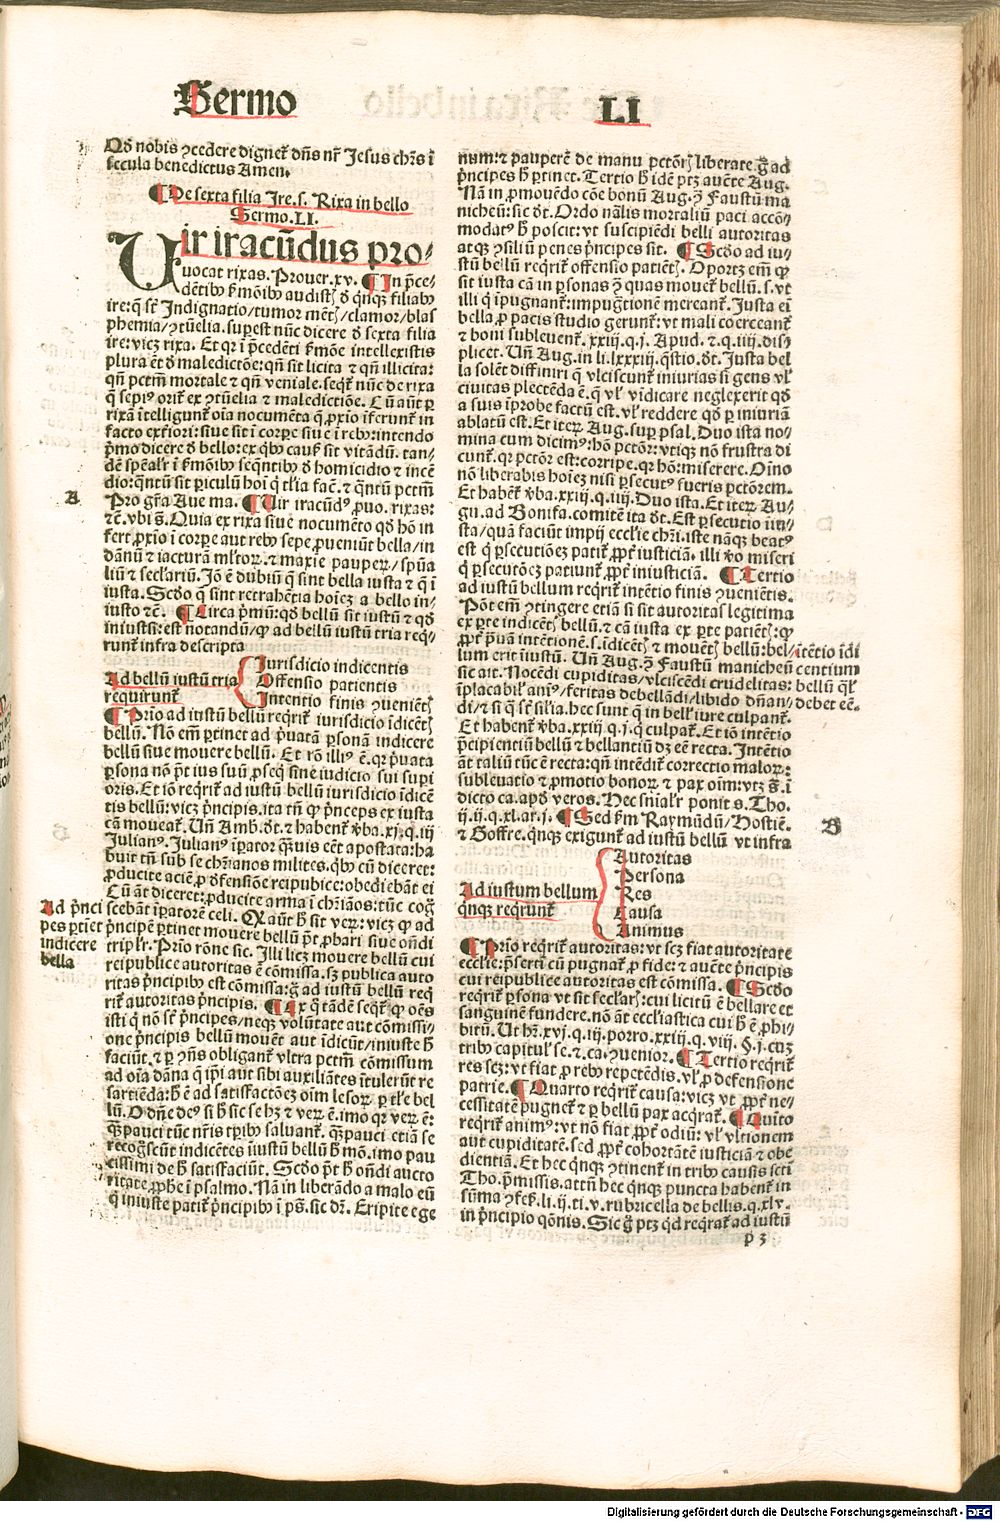 Sermo
LI
Qd̄ nobis ꝯcedere dignet᷑ dn̄s nr̄ Jesus chr̄s ī
secula benedictus Amen.
¶ De sexta filia Ire .s. Rixa in bello
Sermo .LI.
Vir iracūdus pro⸗
uocat rixas. Prouer. xv. ¶ In p̄ce⸗
dētibꝰ ẜmōibꝰ audistꝭ d̄ qn̄qꝫ filiabꝰ
ire: q̄ st̄ Indignatio/tumor mētꝭ/clamor/blas
phemia/ꝯtūelia. suꝑest nūc dicere d̄ sexta filia
ire: vicꝫ rixa. Et qr ī p̄cedēti ẜmōe intellexistis
plura ēt d̄ maledictōe: qn̄ sit licita ⁊ qn̄ illicita:
qn̄ pctm̄ mortale ⁊ qn̄ veniale. seqt᷑ nūc de rixa
q̄ sepiꝰ orit᷑ ex ꝯtūelia ⁊ maledictiōe. Cū aūt ꝑ
rixā ītelligunt᷑ oīa nocumēta q̄ ꝓxīo īferunt᷑ in
facto exteriori: siue sit ī corꝑe siue ī rebꝰ: intendo
p̄mo dicere d̄ bello: ex qbꝰ caus̄ sit vitādū. tan⸗
dē spēalr̄ ī ẜmōibꝰ seqn̄tibꝰ d̄ homicidio ⁊ incē
dio: qn̄tū sit ꝑiculū hoī q̄ tl̄ia fac̄. ⁊ qn̄tū pctm̄
A
Pro gr̄a Aue ma. ¶ Vir iracūdꝰ ꝓuo. rixas:
⁊c̄. vbi s̄. Quia ex rixa siue nocumēto qd̄ hō in
fert ꝓxīo ī corꝑe aut rebꝰ sepe ꝓueniūt bella/in
dānū ⁊ iacturā ml̄toꝝ. ⁊ maxīe pauꝑeꝝ/spūa
liū ⁊ secl̄ariū. Jō ē dubiū q̄ sint bella iusta ⁊ q̄ ī
iusta. Scd̄o q̄ sint retrahētia hoīeꝫ a bello in⸗
iusto ⁊c̄. ¶ Circa p̄mū: qd̄ bellū sit iustū ⁊ qd̄
iniustū: est notandū/ꝙ ad bellū iustū tria reqꝛ⸗
runt᷑ infra descripta
Ad bellū iustū tria
requirunt᷑
Jurisdicio indicentis
Offensio patientis
Intentio finis ꝯueniētꝭ
¶ Prīo ad iustū bellū reqrit᷑ iurisdicio īdicētꝭ
bellū. Nō em̄ ꝑtinet ad p̄uatā ꝑsonā indicere
bellū siue mouere bellū. Et rō illiꝰ ē. qr p̄uata
ꝑsona nō p̄t ius suū ꝓseq̄ sine iudicio sui suꝑi
oris. Et iō reqrit᷑ ad iustū bellū iurisdicio īdicē
tis bellū: vicꝫ p̄ncipis. ita tn̄ ꝙ p̄nceps ex iusta
cā moueat᷑. Vn̄ Amb. dt̄. ⁊ habent᷑ ꝟba. xj. q. iij
Julianꝰ. Julianꝰ īꝑator qꝫuis eēt apostata: ha
buit tn̄ sub se chr̄ianos milites. qbꝰ cū diceret:
ꝓducite aciē ꝓ d̄fensiōe reipublice: obediebāt ei
Cū āt diceret: ꝓducite arma ī chr̄iāos: tūc coḡ
Ad p̄nci
pes ꝑtīet
indicere
bella
scebāt īꝑatorē celi. Qꝛ aūt h̄ sit veꝝ: vicꝫ ꝙ ad
p̄ncipē ꝑtinet mouere bellū p̄t ꝓbari siue on̄di
triplr̄. Prīo rōne sic. Illi licꝫ mouere bellū cui
reipublice autoritas ē cōmissa. sꝫ publica auto
ritas p̄ncipibꝰ est cōmissa: ḡ ad iustū bellū req
rit᷑ autoritas p̄ncipis. ¶ Ex q̄ tādē seqt᷑ ꝙ oēs
isti q̄ nō st̄ p̄ncipes/neqꝫ volūtate aut cōmissi⸗
one p̄ncipis bellū mouēt aut īdicūt/iniuste h̄
faciūt. ⁊ ꝑ ꝯn̄s obligant᷑ vltra pctm̄ cōmissum
ad oīa dāna q̄ ipī aut sibi auxiliātes ītulerūt re
sarciēda: h̄ ē ad satisfactōeꝫ oīm lesoꝝ ꝑ tl̄e bel
lū. O dn̄e deꝰ si h̄ sic se hꝫ ⁊ veꝝ ē. imo qr veꝝ ē:
qꝫpauci tūc nr̄is tꝑibꝰ saluant᷑. qꝫpauci etiā se
recoḡscūt indicētes īiustū bellū h̄ mō. imo pau
cissimi de h̄ satisfaciūt. Scd̄o p̄t h̄ on̄di aucto
ritate ꝓphe ī psalmo. Nā in liberādo a malo eū
q̄ iniuste patit᷑ p̄ncipibꝰ ī ps̄. sic dr̄. Eripite ege
num: ⁊ pauperē de manu pctōꝝ liberate. ḡ ad
p̄ncipes h̄ ꝑtinet. Tertio h̄ idē ptꝫ auc̄te Aug.
Nā in ꝓmouēdo cōe bonū Aug. ꝯ̄ Faustū ma
nicheū: sic dt̄. Ordo nālis mortaliū paci accō⸗
modatꝰ h̄ poscit: vt suscipiēdi belli autoritas
atqꝫ ꝯsiliū penes p̄ncipes sit. ¶ Scd̄o ad iu⸗
stū bellū reqrit᷑ offensio patiētꝭ. Oportꝫ em̄ ꝙ
sit iusta cā in ꝑsonas ꝯ̄ quas mouet᷑ bellū. s. vt
illi q̄ īpugnant᷑: impugtionē mereant᷑. Justa em̄
bella ꝓ pacis studio gerunt᷑: vt mali coerceant᷑
⁊ boni subleuent᷑. xxiij. q. j. Apud. ⁊ q. iiij. dis⸗
plicet. Vn̄ Aug. in li. lxxxiij. qstio. dt̄. Justa bel
la solēt diffiniri q̄ vlciscunt᷑ iniurias si gens vl̄
ciuitas plectēda ē. q̄ vl̄ vīdicare neglexerit qd̄
a suis iprobe factū est. vl̄ reddere qd̄ ꝑ iniuriā
ablatū est. Et iteꝝ Aug. suꝑ psal. Duo ista no⸗
mina cum dicimꝰ: hō pctōr: vtiqꝫ nō frustra di
cunt᷑. qr pctōr est: corripe. qr hō: miserere. Oīno
nō liberabis hoīeꝫ nisi ꝑsecutꝰ fueris pctōrem.
Et habēt᷑ ꝟba. xxiij. q. iiij. Duo ista. Et iteꝝ Au⸗
gu. ad Bonifa. comitē ita dt̄. Est ꝑsecutio iu⸗
sta/quā faciūt impij eccl̄ie chr̄i. iste nāqꝫ beatꝰ
est q̄ ꝑsecutiōeꝫ patit᷑ ꝓpt̄ iusticiā. illi ꝟo miseri
q̄ ꝑsecutōeꝫ patiunt᷑ ꝓpt̄ iniusticiā. ¶ Tertio
ad iustū bellum reqrit᷑ intētio finis ꝯueniētis.
Pōt em̄ ꝯtingere etiā si sit autoritas legitima
ex ꝑte indicētꝭ bellū. ⁊ cā iusta ex ꝑte patiētꝭ: ꝙ
ꝓpt̄ p̄uā intētionē. s. idicētꝭ ⁊ mouētꝭ bellū: bel⸗
lum erit īiustū. Vn̄ Aug. ꝯ̄ Faustū manicheū
sic ait. Nocēdi cupiditas/vlciscēdi crudelitas:
īplacabil̄ anīꝰ/feritas debellādi/libido dn̄an⸗
di/⁊ si q̄ st̄ sil̄ia. hec sunt q̄ in bell̄ iure culpant᷑.
ītētio īdi
centium
bellū ql̄
debet eē.
Et habent᷑ ꝟba. xxiij. q. j. q̄ culpat᷑. Et iō intētio
p̄cipientiū bellū ⁊ bellantiū dꝫ eē recta. Intētio
āt taliū tūc ē recta: qn̄ intēdit᷑ correctio maloꝝ:
subleuatio ⁊ ꝓmotio bonoꝝ ⁊ pax oīm: vtꝫ s̄. ī
dicto ca. apd̄ veros. Hec sn̄ialr̄ ponit s. Tho.
ij. ij. q. xl. ar. j. ¶ Sed ẜm Raymūdū/Hostiē.
B
⁊ Goffre. qn̄qꝫ exigunt᷑ ad iustū bellū vt infra
Ad iustum bellum
qn̄qꝫ reqrunt᷑
Autoritas
Persona
Res
Causa
Animus
¶ Prīo reqrit᷑ autoritas: vt scꝫ fiat autoritate
eccl̄ie: p̄serti cū pugnat᷑ ꝓ fide: ⁊ auc̄te p̄ncipis
cui reipublice autoritas est cōmissa. ¶ Scd̄o
reqrit᷑ ꝑsona vt sit secl̄arꝭ: cui licitū ē bellare et
sanguinē fundere. nō āt eccl̄iastica cui h̄ ē ꝓhi⸗
bitū. Ut hr̄. xvj. q. iij. porro. xxiij. q. viij. §. j. cuꝫ
tribꝰ capitul̄ se. ⁊ ca. ꝯuenior. ¶ Tertio reqrit᷑
res scꝫ: vt fiat ꝓ rebꝰ repetēdis. vl̄ ꝓ defensione
patrie. ¶ Quarto reqrit᷑ causa: vicꝫ vt ꝓpt̄ ne⸗
cessitatē pugnet᷑ ⁊ ꝑ bellū pax acqrat᷑. ¶ Quīto
reqrit᷑ animꝰ: vt nō fiat ꝓpt̄ odiū: vl̄ vltionem
aut cupiditatē. sed ꝓpt̄ cohortātē iusticiā ⁊ obe
dientiā. Et hec qn̄qꝫ ꝯtinent᷑ in tribꝰ causis sc̄ti
Tho. p̄missis. attn̄ hec qn̄qꝫ puncta habent᷑ in
sūma ꝯfess̄. li. ij. ti. v. rubricella de bellis. q. xlv.
in p̄ncipio qōnis. Sic ḡ ptꝫ qd reqrat᷑ ad iustū
p 3
Digitalisierung gefördert durch die Deutsche Forschungsgemeinschaft - DFG